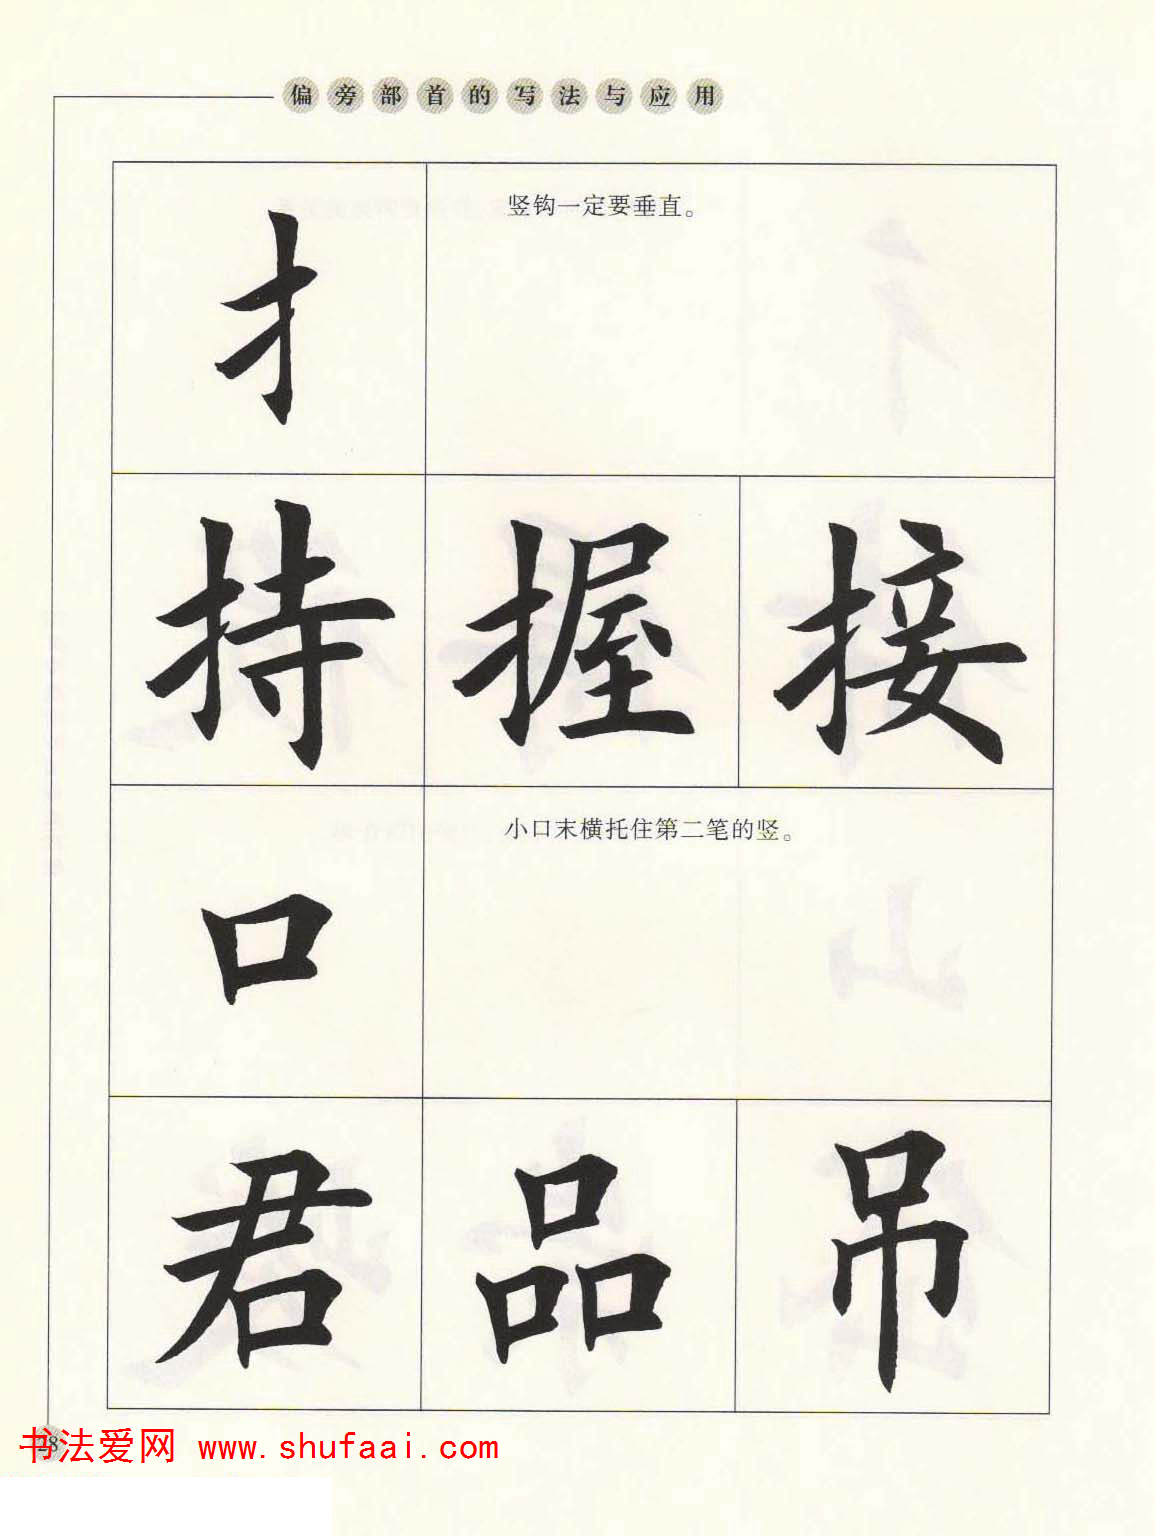 偏旁部首的写法与应用
扌
竖钩一定要垂直。
持 握 接
口
小口末横托住第二笔的竖。
君 品 吊
28
书法爱网 www.shufaai.com